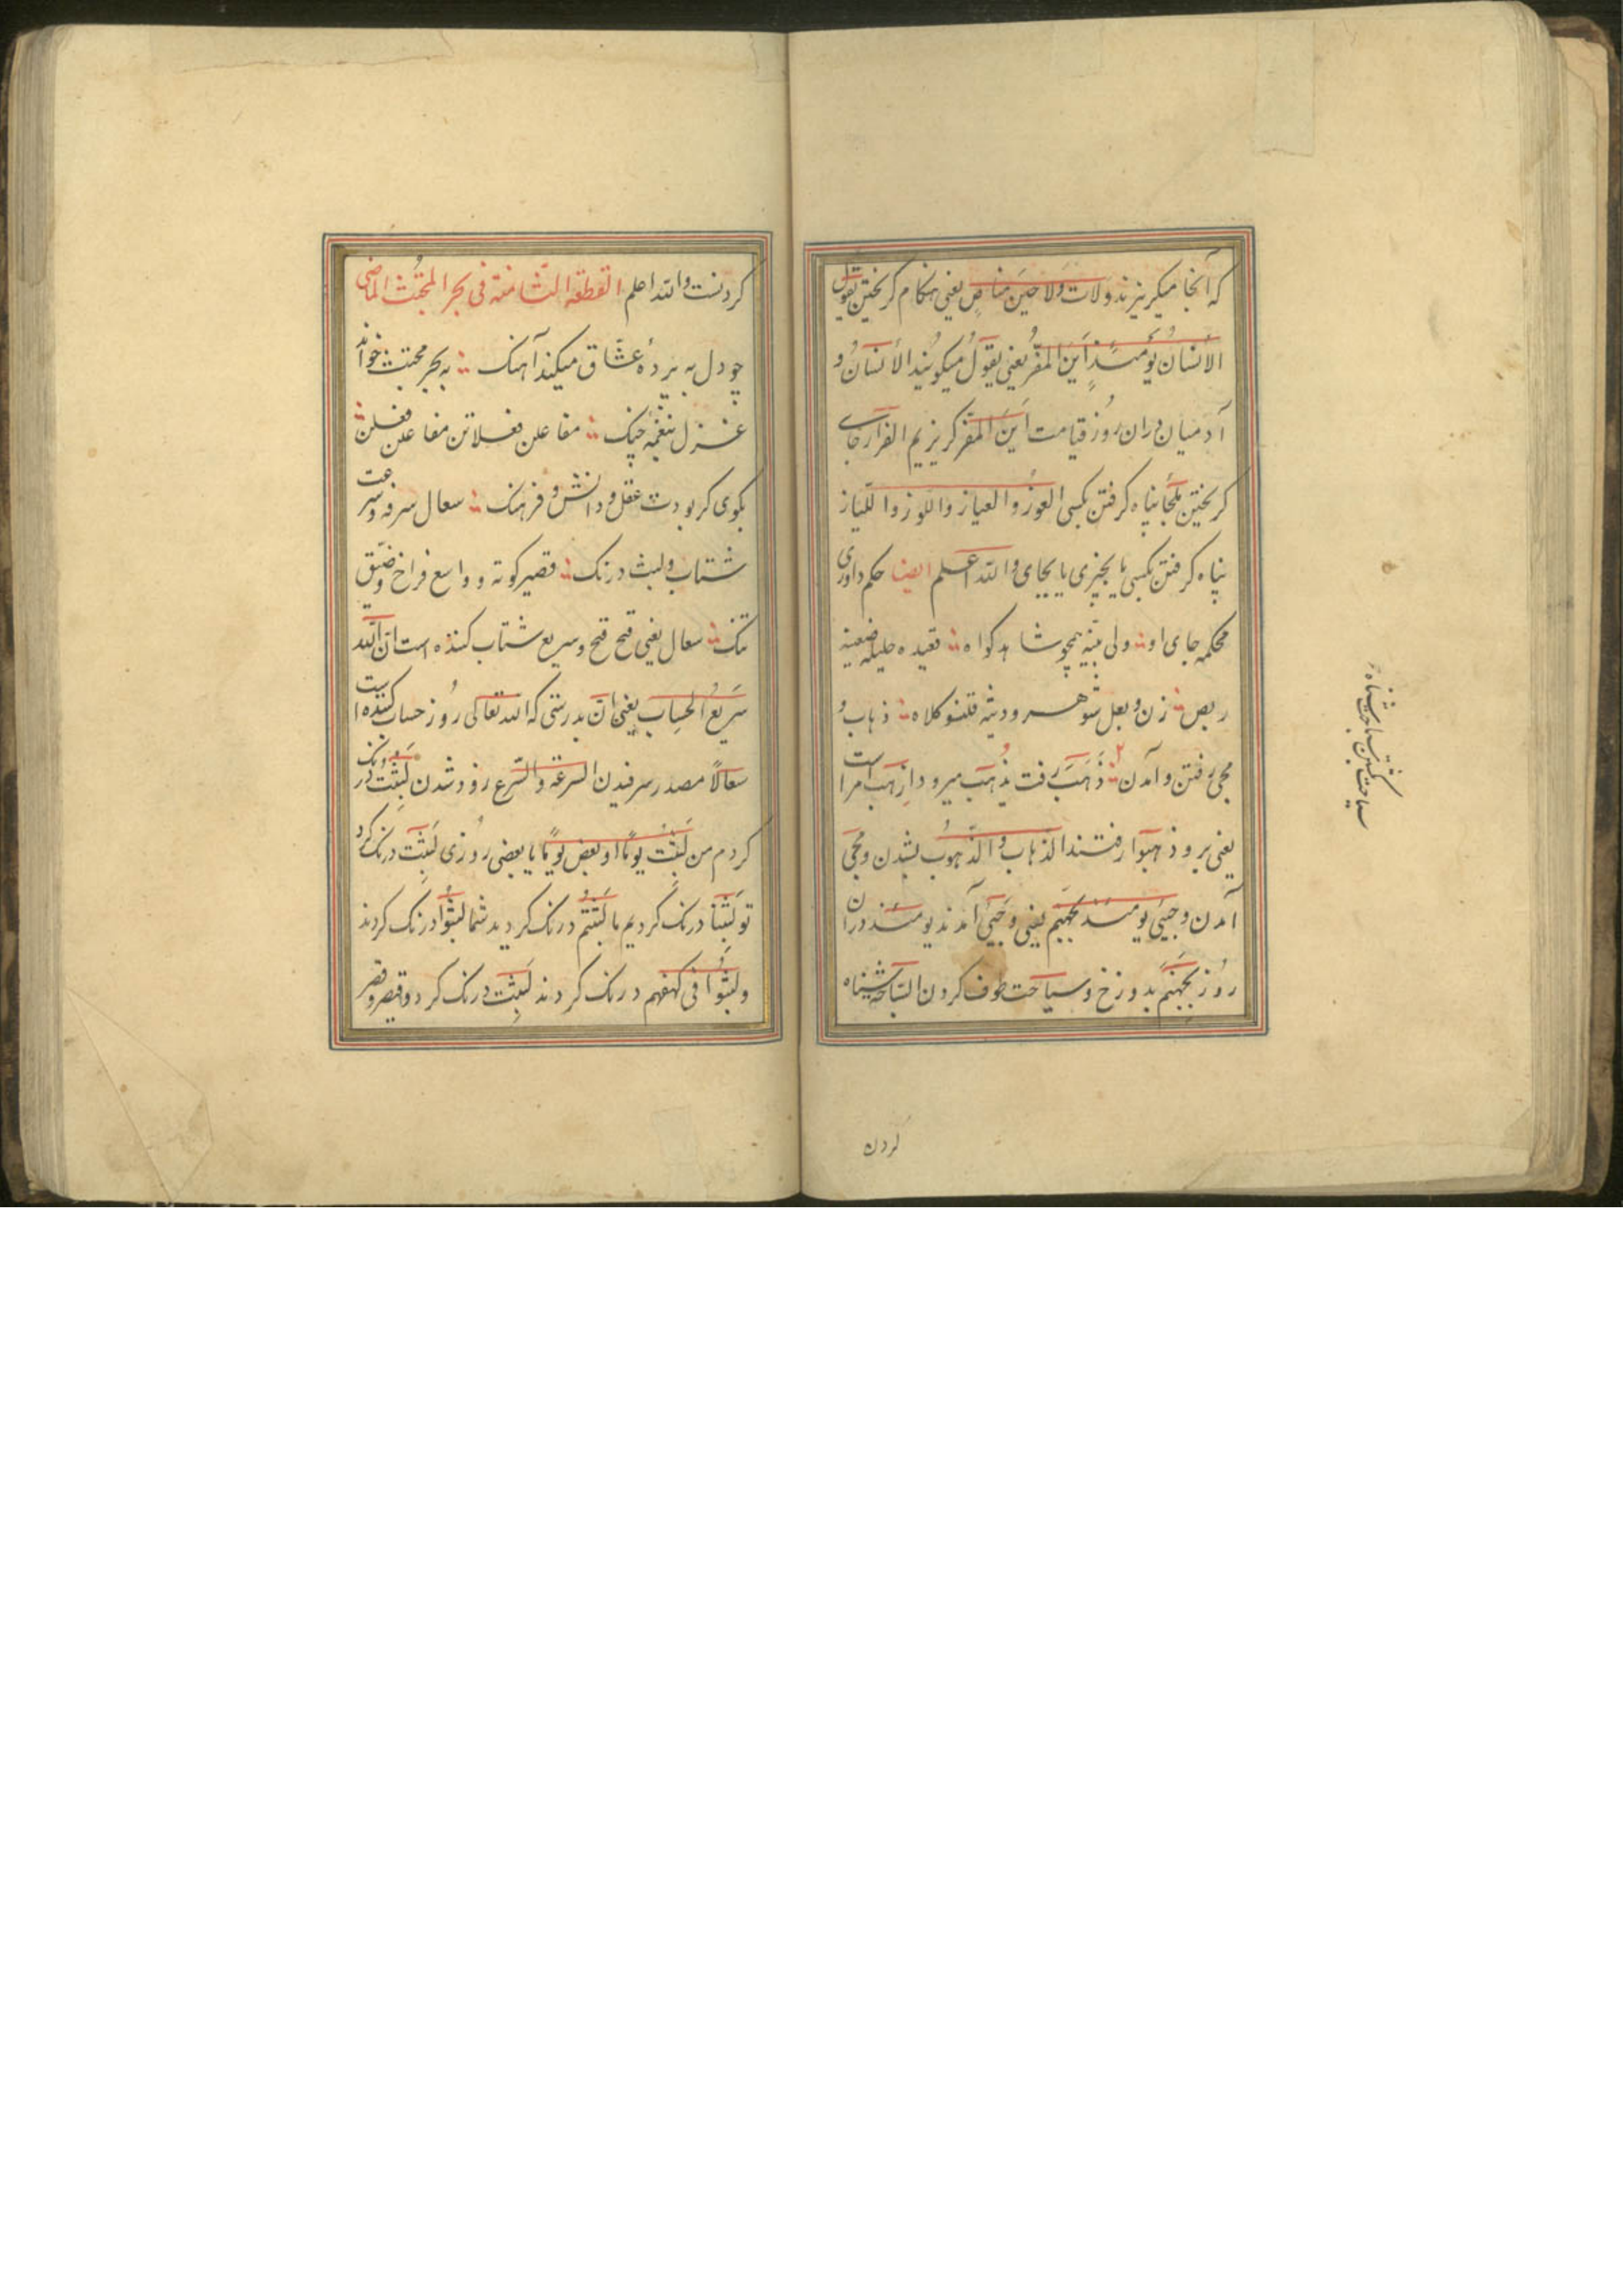 که آنجا میگریزند ولات ولا حین مناص یعنی هنگام گریختن یقول
الانسان یومئذ این المفر یعنی یقول میگویند الانسان و
آدمیان دران روز قیامت این المفر گریزیم الفرار جای
گریختن ملجأ پناه گرفتن بکسی العوذ و العیاذ واللوذ واللیاذ
پناه گرفتن بکسی یا بچیزی یا بجای والله اعلم ایضا حکم داوری
محکمه جای او ولی بینه همچو شاهد کواه قعیده حلیله ضعینه
ربض زن و بعل شوهر و دثیه قلنسو کلاه ذهاب و
مجی رفتن و آمدن ذهب رفت یذهب میرود اذهب امراست
یعنی برو ذهبوا رفتند الذهاب والذهوب بشدن ومجی
آمدن وجیئ یومئذ بجهنم یعنی وجیئ آمدند یومئذ دران
روز بجهنم بدوزخ وسیاحت طوف کردن السباحة شناه
کردن
سیاحت کشتن سباحت شناه
کردنست والله اعلم القطعة الثامنة فی بحر المجتث الماضی
چو دل به پردۀ عشاق میکند آهنک به بحر مجتث خواند
غزل بنغمه چنک مفاعلن فعلاتن مفاعلن فعلن
بکوی کر بودت عقل ودانش و فرهنک سعال سرفه وسرعت
شتاب ولبث درنک قصیر کوته و واسع فراخ وضیق
تنک سعال یعنی قح قح وسریع شتاب کننده است ان الله
سریع الحساب یعنی ان بدرستی که الله تعالی روز حساب کننده است
سعالا مصدر سرفیدن السرعة والسرع زود شدن لبثت درنک
کردم من لبثت یوما او بعض یوما یا بعضی روزی لبثت درنک کرد
تو لبثنا درنک کردیم ما لبثتم درنک کردید شما لبثوا درنک کردند
ولبثوا فی کهفهم درنک کردند لبثت درنک کرد و قیصر و قصر